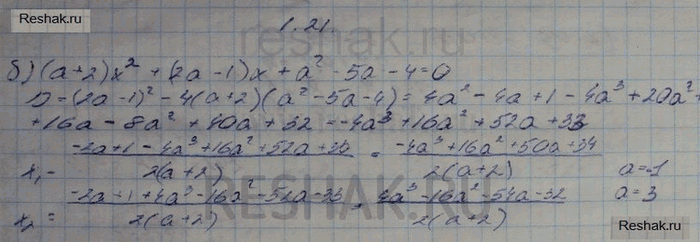 Reshak.ru
Reshak.ru
1.21.
б) (a+2)x² + (2a-1)x + a² - 5a - 4 = 0
D = (2a-1)² - 4(a+2)(a² - 5a - 4) = 4a² - 4a + 1 - 4a³ + 20a²
+ 16a - 8a² + 40a + 32 = -4a³ + 16a² + 52a + 33
x₁ = (-2a + 1 - 4a³ + 16a² + 52a + 33) / 2(a+2) = (-4a³ + 16a² + 50a + 34) / 2(a+2) a = -1
x₂ = (-2a + 1 + 4a³ - 16a² - 52a - 33) / 2(a+2) = (4a³ - 16a² - 54a - 32) / 2(a+2) a = 3
RESHAK.RU
Reshak.ru
Reshak.ru